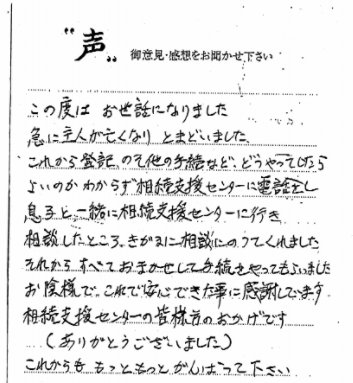 "声" 御意見・感想をお聞かせ下さい
この度は お世話になりました
急に主人が亡くなり とまどいました。
これから登記、その他の手続など、どうやっていったら
よいのか わからず相続支援センターに電話をし
息子と一緒に相続支援センターに行き
相談したところ、きがるに相談にのってくれました
それから すべておまかせして手続をやってもらいました
お陰様で、これで安心できた事に感謝しています
相続支援センターの皆様方のおかげです
(ありがとうございました)
これからも もっともっと がんばって下さい